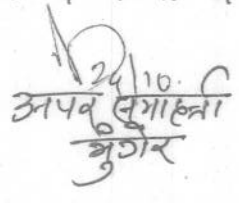 24/10.
अपर समाहर्ता
मुंगेर